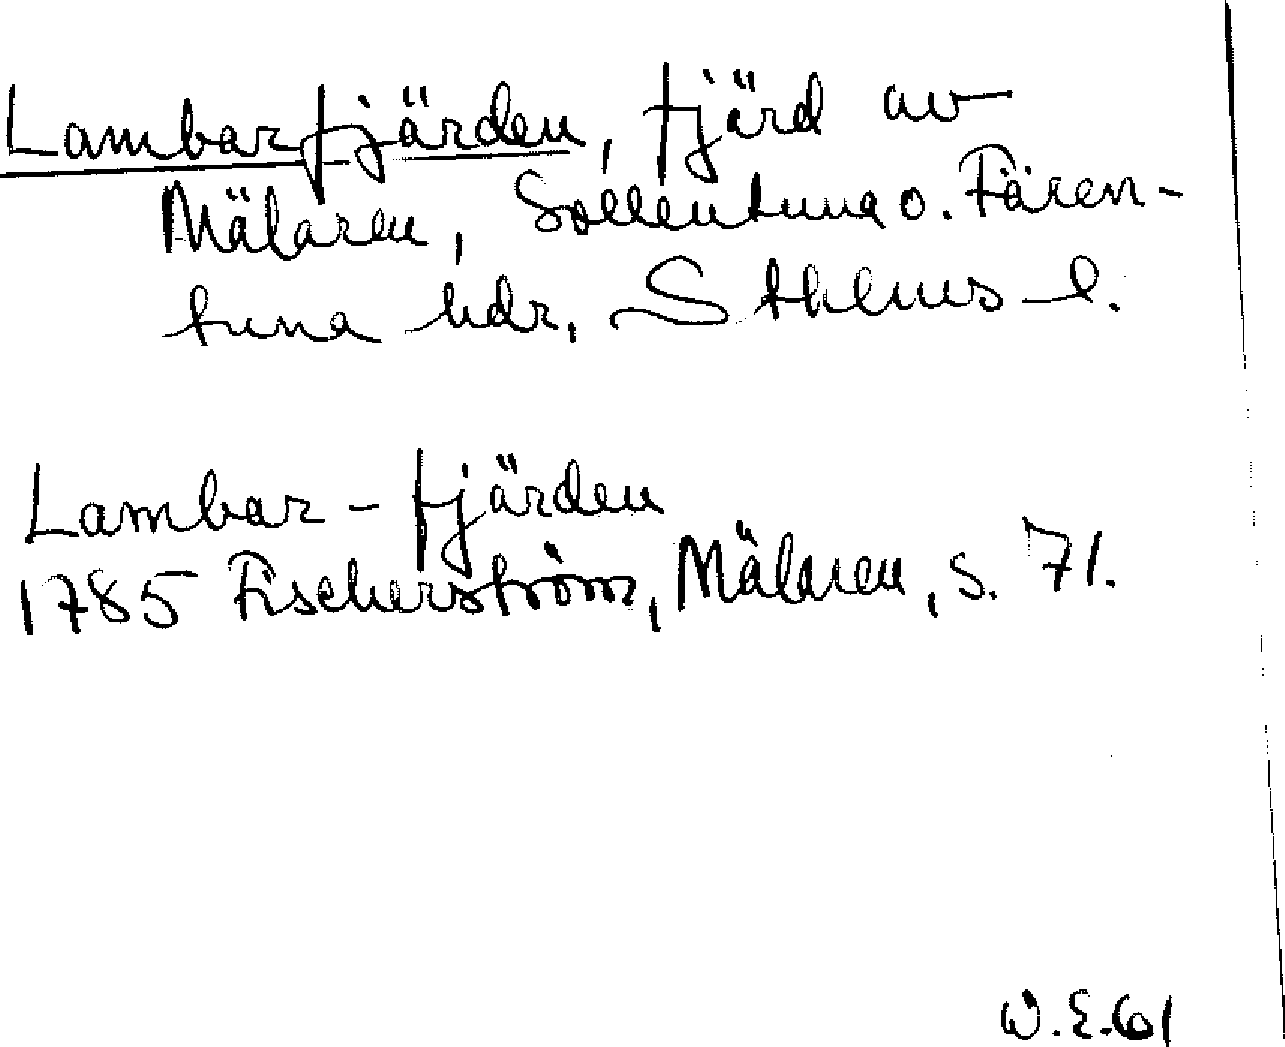 Lambarfjärden, fjärd av
Mälaren, Sollentuna o. Fären-
tuna hdr, Sthlms l.
Lambar-fjärden
1785 Fischerström, Mälaren, s. 71.
W.E.61